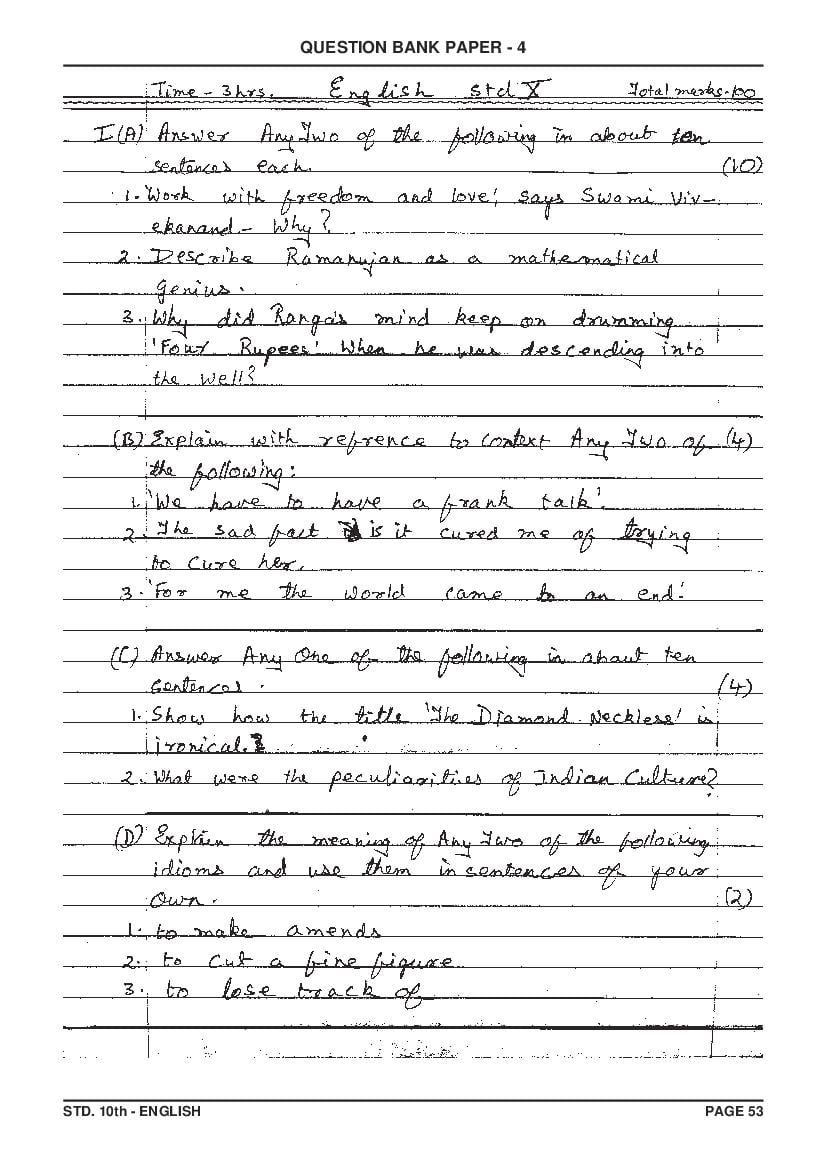 QUESTION BANK PAPER - 4
Time - 3 hrs. English Std X Total marks-100
I (A) Answer Any Two of the following in about ten
sentences each. (10)
1. 'Work with freedom and love', says Swami Viv-
ekanand - Why?
2. Describe Ramanujan as a mathematical
Genius.
3. Why did Ranga's mind keep on drumming
'Four Rupees' When he was descending into
the well?
(B) Explain with refrence to context Any Two of (4)
the following:
1. 'We have to have a frank talk'.
2. 'The sad fact is it cured me of trying
to cure her.
3. 'For me the world came to an end.'
(C) Answer Any One of the following in about ten
sentences. (4)
1. Show how the title 'The Diamond Neckless' is
ironical.
2. What were the peculiarities of Indian Culture?
(D) Explain the meaning of Any Two of the following
idioms and use them in sentences of your
own. (2)
1. to make amends
2. to cut a fine figure
3. to lose track of
STD. 10th - ENGLISH PAGE 53